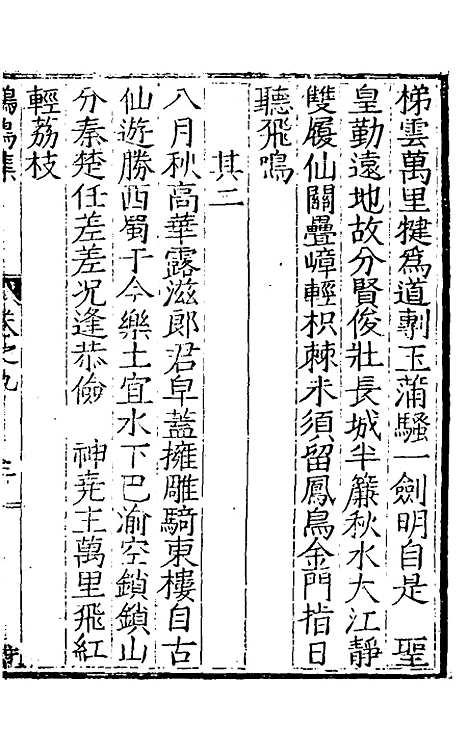 梯雲萬里犍為道剸玉蒲騷一劍明自是　聖
皇勤遠地故分賢俊壯長城半簾秋水大江靜
雙履仙關疊嶂輕枳棘未須留鳳鳥金門指日
聽飛鳴
其二
八月秋高華露滋郎君皁蓋擁雕騎東樓自古
仙遊勝西蜀于今樂土宜水下巴渝空鎖鎖山
分秦楚任差差況逢恭儉　神堯主萬里飛紅
輕荔枝
鳴集
卷之九